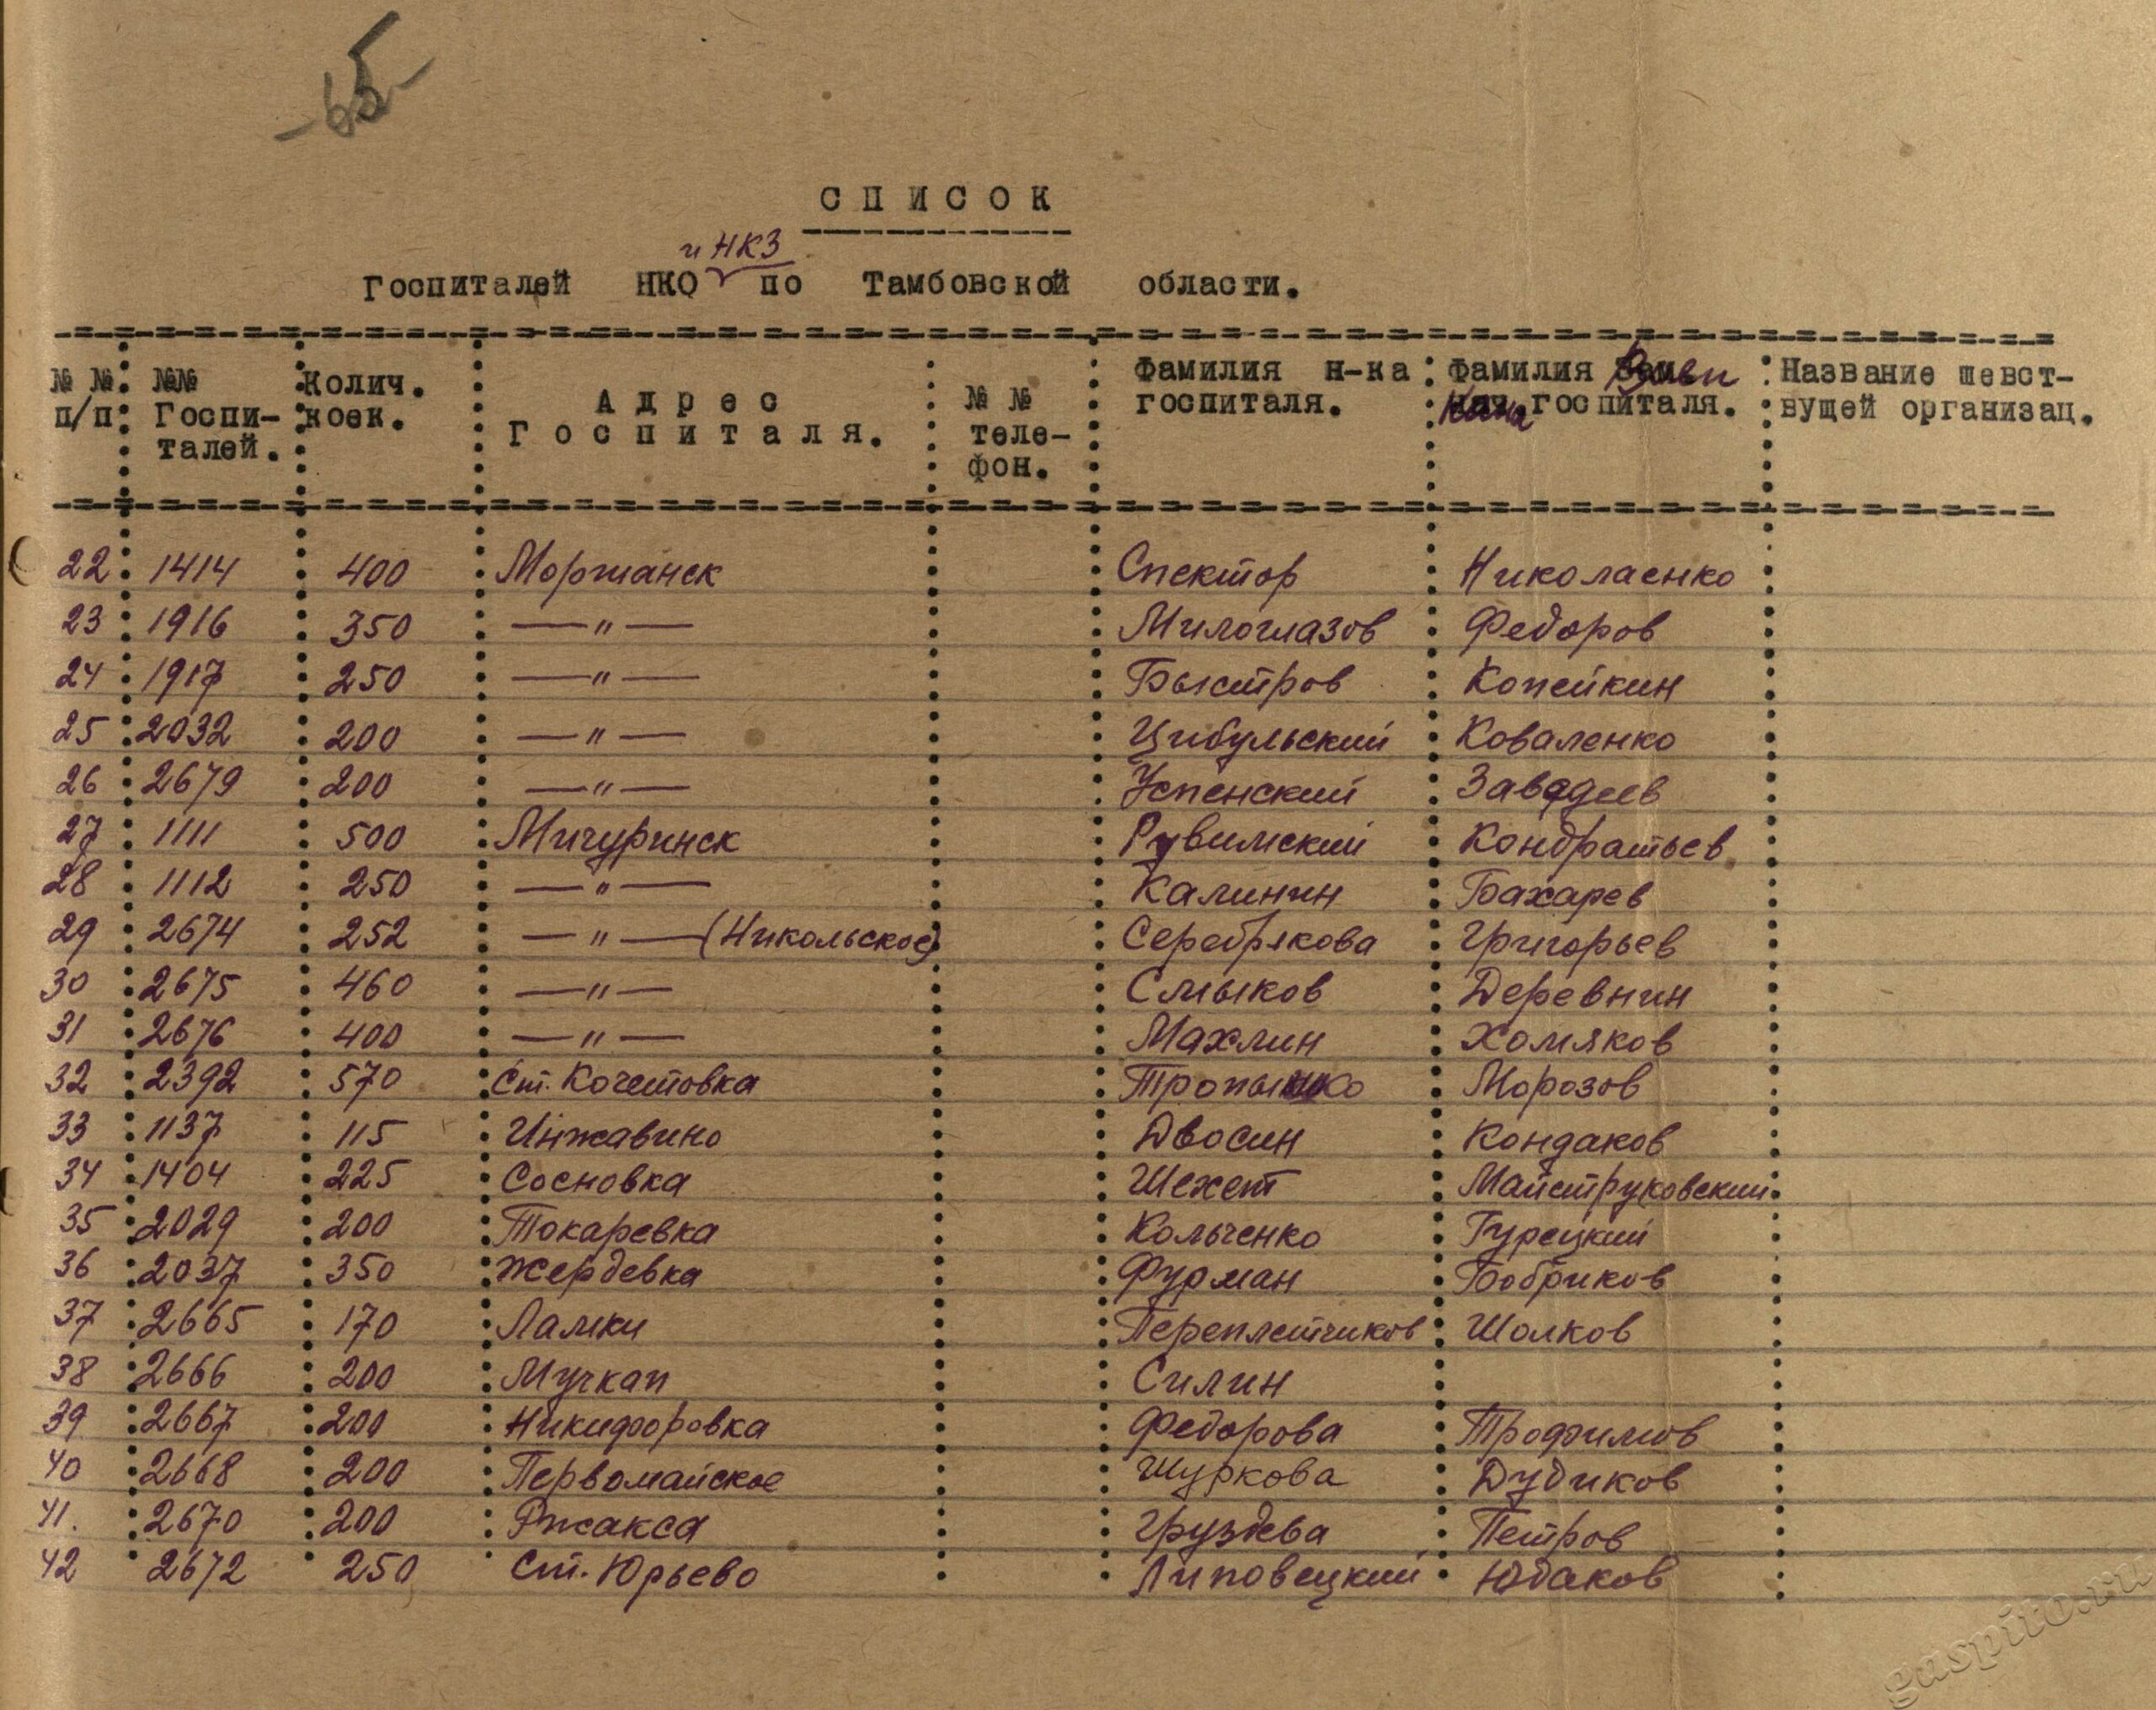 -65-
СПИСОК
и НКЗ
Госпиталей НКО по Тамбовской области.
№ № п/п №№ Госпи-талей. Колич. коек. Адрес Госпиталя. № № теле-фон. Фамилия н-ка госпиталя. Фамилия госпиталя. Название шевст-вущей организац.
22 1414 400 Моршанск Спектор Николаенко
23 1916 350 —"— Милоглазов Федоров
24 1917 250 —"— Быстров Копейкин
25 2032 200 —"— Цибульский Коваленко
26 2679 200 —"— Успенский
27 1111 500 Мичуринск Рувимский Кондратьев
28 1112 250 —"— Калинин Бахарев
29 2674 252 —"— (Никольское) Серебрякова Григорьев
30 2675 460 —"— Смыков Деревнин
31 2676 400 —"— Махлин Хомяков
32 2392 570 Ст. Кочетовка Морозов
33 1137 115 Инжавино Двосин Кондаков
34 1404 225 Сосновка Шехет Майструковский
35 2029 200 Токаревка Кольченко Гурецкий
36 2037 350 Жердевка Фурман Бобриков
37 2665 170 Ламки Переплетчиков Шолков
38 2666 200 Мучкап Силин
39 2667 200 Никифоровка Федорова Трофимов
40 2668 200 Первомайское Шуркова Дудиков
41. 2670 200 Ржакса Груздева Петров
42 2672 250 Ст. Юрьево Липовецкий Юдаков
gaspito.ru